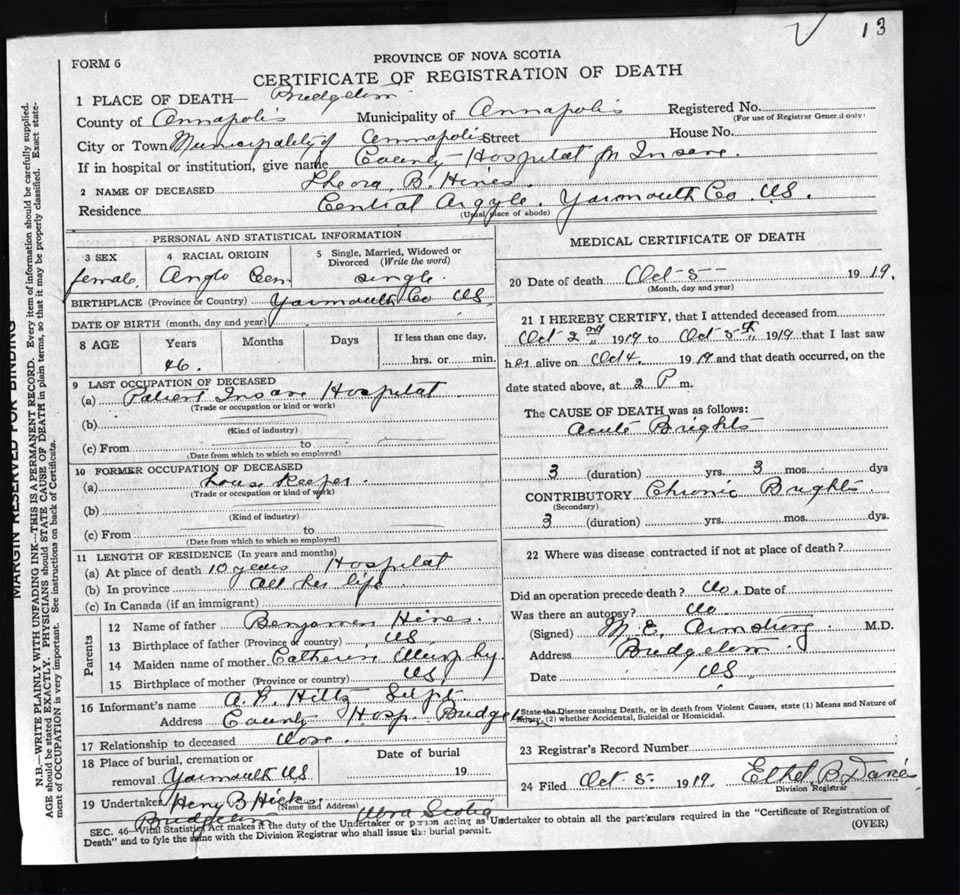 13
FORM 6
PROVINCE OF NOVA SCOTIA
CERTIFICATE OF REGISTRATION OF DEATH
1 PLACE OF DEATH— Bridgetown
County of Annapolis Municipality of Annapolis Registered No.
(For use of Registrar General only)
City or Town Municipality of Annapolis Street House No.
If in hospital or institution, give name County Hospital for Insane
2 NAME OF DECEASED Theora B. Hines.
Residence Central Argyle. Yarmouth Co NS.
(Usual place of abode)
PERSONAL AND STATISTICAL INFORMATION
3 SEX 4 RACIAL ORIGIN 5 Single, Married, Widowed or Divorced (Write the word)
female Anglo single
BIRTHPLACE (Province or Country) Yarmouth Co NS.
DATE OF BIRTH (month, day and year)
8 AGE Years Months Days If less than one day,
46. hrs. or min.
9 LAST OCCUPATION OF DECEASED
(a) Patient Insane Hospital
(Trade or occupation or kind or work)
(b)
(Kind of industry)
(c) From to
(Date from which to which so employed)
10 FORMER OCCUPATION OF DECEASED
(a) house keeper.
(Trade or occupation or kind of work)
(b)
(Kind of industry)
(c) From to
(Date from which to which so employed)
11 LENGTH OF RESIDENCE (In years and months)
(a) At place of death 10 years Hospital
(b) In province all her life
(c) In Canada (if an immigrant)
Parents
12 Name of father Benjamen Hines.
13 Birthplace of father (Province or country) NS
14 Maiden name of mother Catherin Murphy
15 Birthplace of mother (Province or country) NS.
16 Informant's name A. F. Hiltz Supt.
Address County Hosp. Bridgetown
17 Relationship to deceased None.
18 Place of burial, cremation or Date of burial
removal Yarmouth NS 19
19 Undertaker Henry B. Hicks.
(Name and Address)
Bridgetown Nova Scotia
MEDICAL CERTIFICATE OF DEATH
20 Date of death Oct 5 1919.
(Month, day and year)
21 I HEREBY CERTIFY, that I attended deceased from
Oct 2nd 1919 to Oct 5th 1919 that I last saw
her alive on Oct 4. 1919 and that death occurred, on the
date stated above, at 2 P m.
The CAUSE OF DEATH was as follows:
Acute Brights
3 (duration) yrs. 3 mos. dys
CONTRIBUTORY Chronic Brights.
(Secondary)
3 (duration) yrs. mos. dys.
22 Where was disease contracted if not at place of death?
Did an operation precede death? No. Date of
Was there an autopsy? No
(Signed) M. E. Armstrong. M.D.
Address Bridgetown
Date NS
State the Disease causing Death, or in death from Violent Causes, state (1) Means and Nature of
Injury, (2) whether Accidental, Suicidal or Homicidal.
23 Registrar's Record Number
24 Filed Oct 5 1919. Ethel B. Davies
Division Registrar
SEC. 46—Vital Statistics Act makes it the duty of the Undertaker or person acting as Undertaker to obtain all the particulars required in the "Certificate of Registration of
Death" and to fyle the same with the Division Registrar who shall issue the burial permit. (OVER)
MARGIN RESERVED FOR BINDING
N.B.—WRITE PLAINLY WITH UNFADING INK—THIS IS A PERMANENT RECORD. Every item of information should be carefully supplied.
AGE should be stated EXACTLY. PHYSICIANS should STATE CAUSE OF DEATH in plain terms, so that it may be properly classified. Exact state-
ment of OCCUPATION is very important. See instructions on back of Certificate.